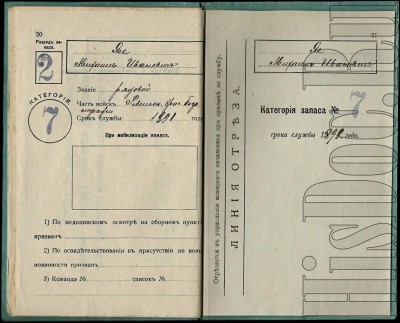 30
Разрядъ запаса.
2
Михаилъ Ивановичъ
КАТЕГОРІЯ
7
Званіе рядовой
Часть войскъ
Срокъ службы: 1891 года
При мобилизаціи явился.
1) По медицинскомъ осмотрѣ на сборномъ пункт
признанъ
2) По освидѣтельствованіи въ присутствіи по воин
повинности признанъ
3) Команда № списокъ №
ЛИНІЯ ОТРѢЗА.
Отрѣзается въ управленіи воинскаго начальника при призывѣ на службу.
31
Михаилъ Ивановичъ
Категорія запаса № 7
срока службы 189 годн.
HisDoc.Ru